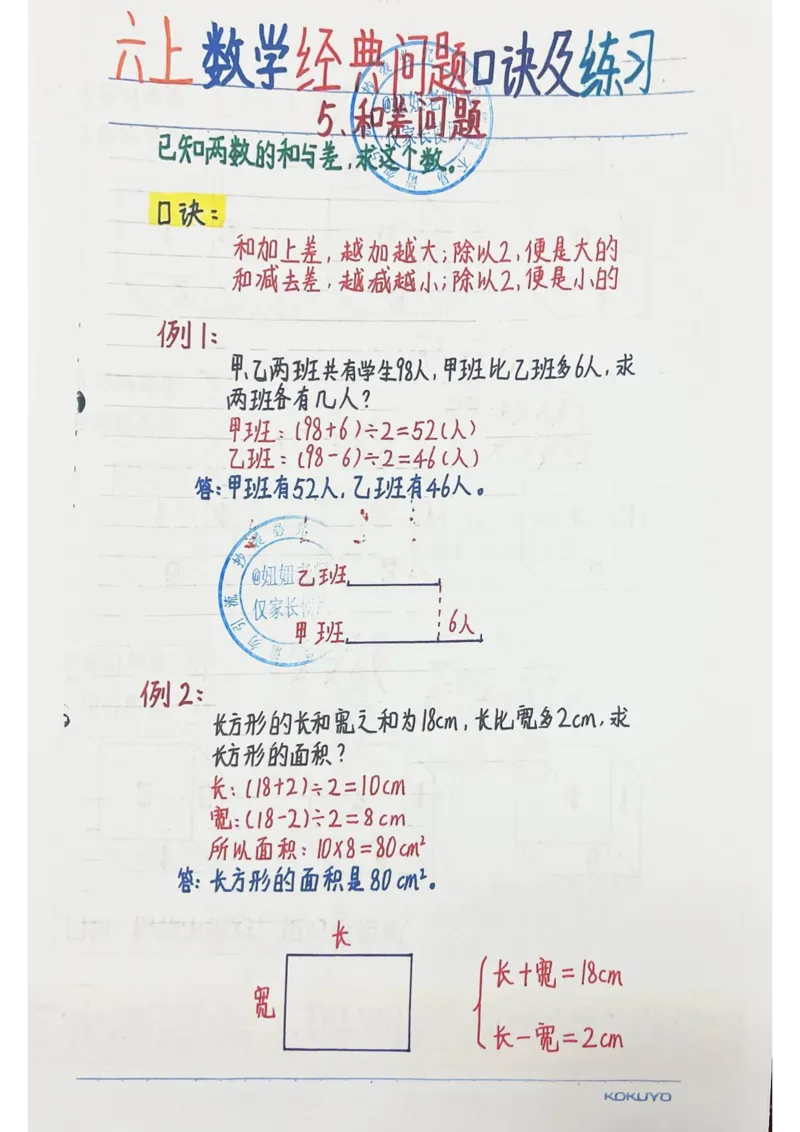 六上数学经典问题口诀及练习
5、和差问题
已知两数的和与差,求这个数。
口诀:
和加上差,越加越大;除以2,便是大的
和减去差,越减越小;除以2,便是小的
例1:
甲、乙两班共有学生98人,甲班比乙班多6人,求
两班各有几人?
甲班:(98+6)÷2=52(人)
乙班:(98-6)÷2=46(人)
答:甲班有52人,乙班有46人。
@妞妞老
乙班
仅家长使
甲班
6人
例2:
长方形的长和宽之和为18cm,长比宽多2cm,求
长方形的面积?
长:(18+2)÷2=10cm
宽:(18-2)÷2=8cm
所以面积:10×8=80cm²
答:长方形的面积是80cm²。
长
宽
长+宽=18cm
长-宽=2cm
KOKUYO